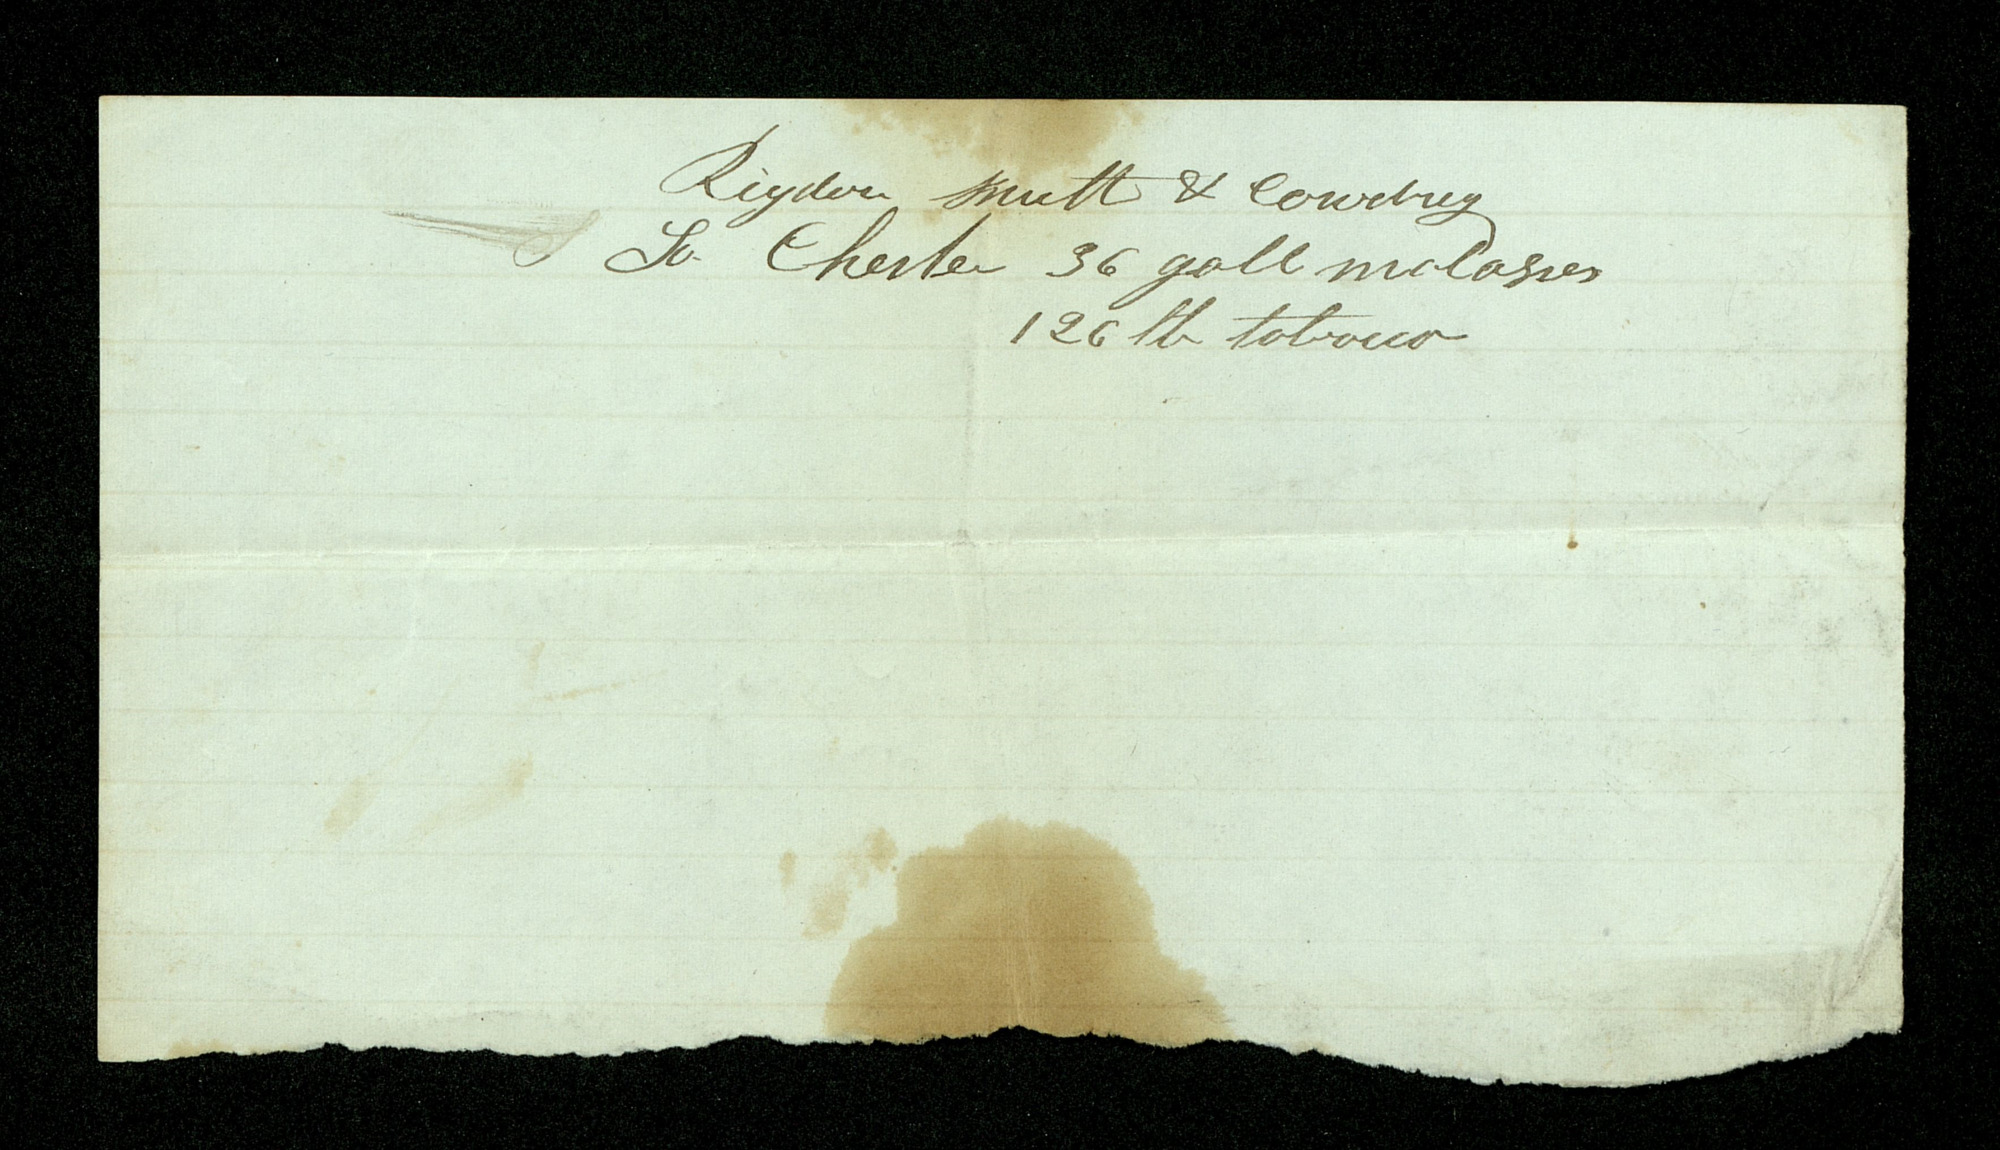 Rigdon Smith & Cowdrey
So Chester 36 gall molasses
126 lb tobacco